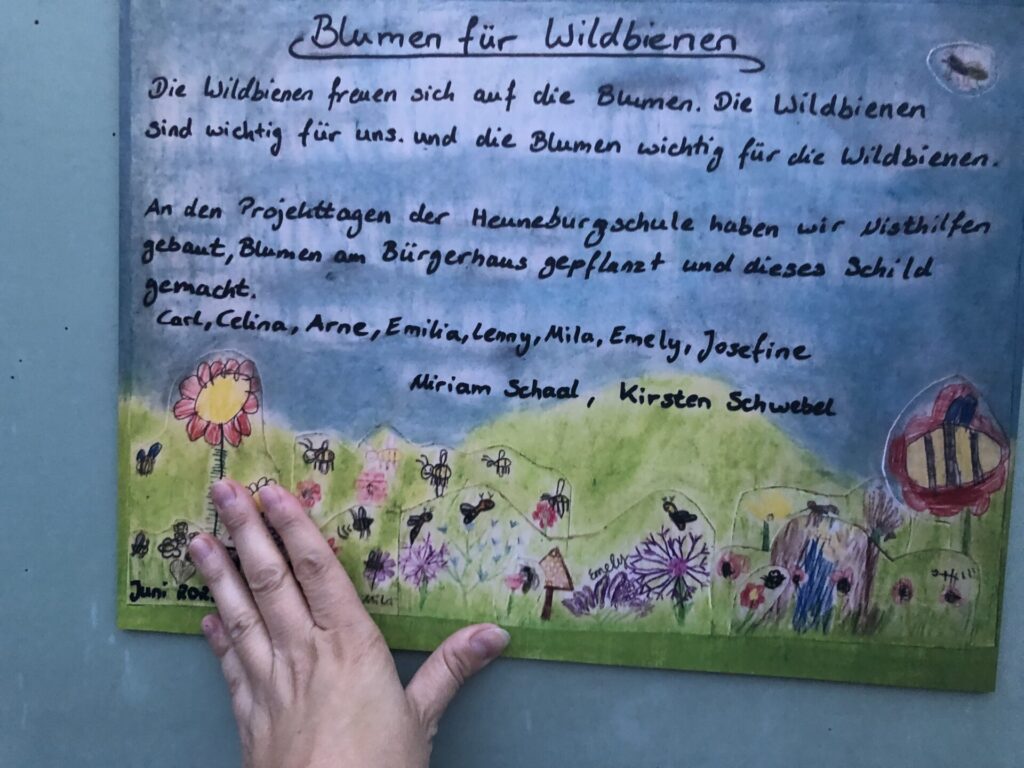 Blumen für Wildbienen
Die Wildbienen freuen sich auf die Blumen. Die Wildbienen
sind wichtig für uns. und die Blumen wichtig für die Wildbienen.
An den Projekttagen der Heuneburgschule haben wir Nisthilfen
gebaut, Blumen am Bürgerhaus gepflanzt und dieses Schild
gemacht.
Carl, Celina, Arne, Emilia, Lenny, Mila, Emely, Josefine
Miriam Schaal, Kirsten Schwebel
Emely
Mila
Juni